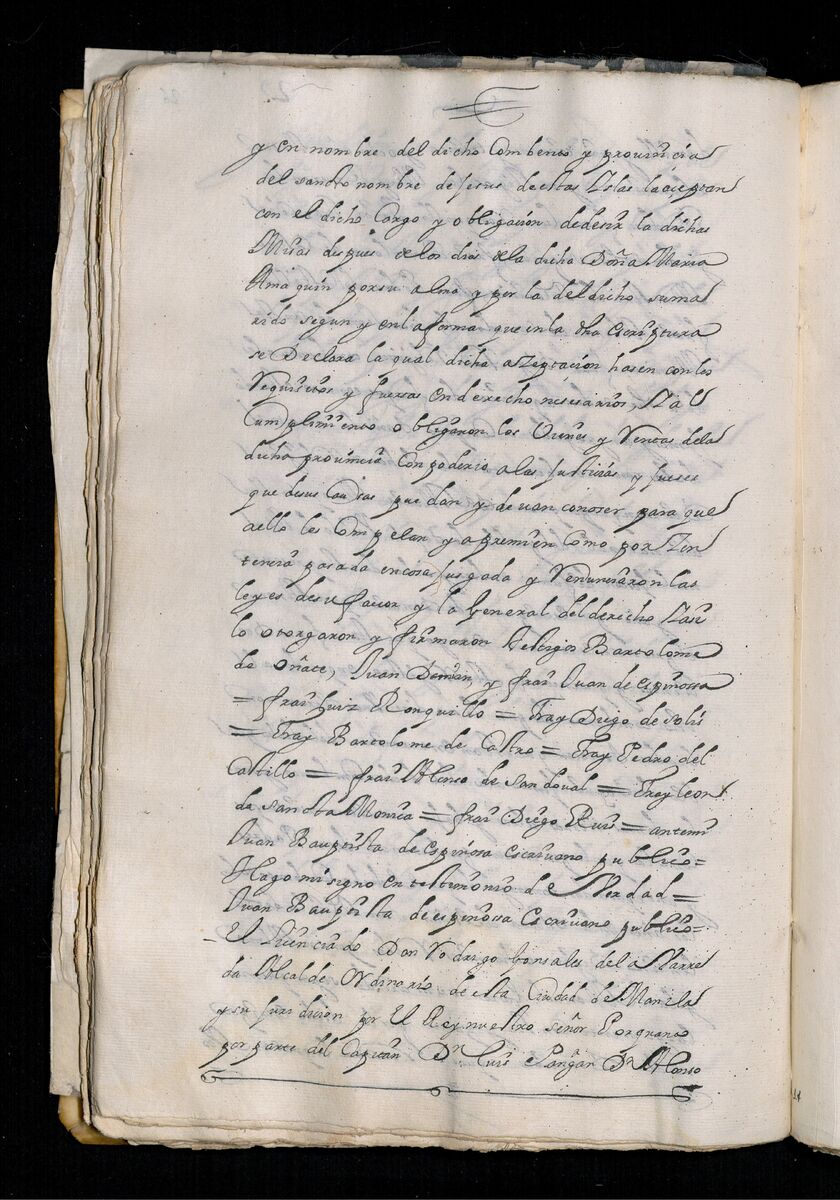 y en nombre del dicho Combento y prouinçia
del sancto nombre de Jesus de estas Yslas la aceptan
con el dicho Cargo y obligaçion de desir la dichas
Misas despues de los dias de la dicha Doña Maria
Amaguin por su alma y por la del dicho su ma
rido segun y en la forma que en la dha escriptura
se Declara la qual dicha azeptaçion hasen con los
Requisitos y fuersas en derecho nesesarios, Y a el
Cumplimiento obligaron los Vienes y Rentas de la
dicha prouinçia Con poderio a las Justiçias y Jueses
que de sus Causas puedan y devan conoser para que
a ello les Compelan y apremien Como por Zen
tencia pasada en cosa Jusgada y Renunsiaron las
leyes de su fauor y la General del derecho Y asi
lo otorgaron y firmaron testigos Bartolome
de Oñate, Juan Demin y frai Juan de espinossa
= frai Luiz Ronquillo = Fray Diego de solis
= Fray Bartolome de Castro = Fray Pedro del
Castillo = frai Alonso de sandoval = Fray leon
de sancta Monica = frai Diego Ruis = antemi
Juan Bauptista de espinosa escriuano publico =
Hago mi signo en testimonio de Verdad =
Juan Bauptista de espinossa Escriuano publico =
El licenciado Don Rodrigo Gonsales de la Barre
da Alcalde Ordinario de esta Ciudad de Manila
y su Juridicion por El Rey nuestro señor Porquanto
por parte del Capitan Dn Luis Pangan Dn Alonso